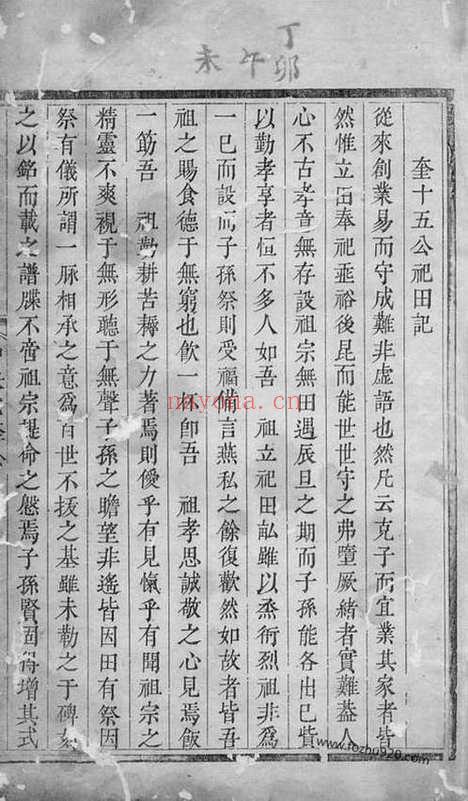 丁卯
午
未
奎十五公祀田記
從來創業易而守成難非虛語也然凡云克子而宜業其家者皆
然惟立田奉祀垂裕後昆而能世世守之弗墮厥緒者實難葢人
心不古孝音無存設祖宗無田遇辰旦之期而子孫能各出己貲
以勤孝享者恒不多人如吾 祖立祀田畝雖以烝衎烈祖非為
一已而設而子孫祭則受福備言燕私之餘復歡然如故者皆吾
祖之賜食德于無窮也飲一 即吾 祖孝思誠敬之心見焉飯
一筯吾 祖勤耕苦耨之力著焉則僾乎有見愾乎有聞祖宗之
精靈不爽視于無形聽于無聲子孫之瞻望非遙皆因田有祭因
祭有儀所謂一脉相承之意為百世不拔之基雖未勒之于碑刻
之以銘而載之譜牒不啻祖宗提命之慇焉子孫賢固得增其式
nayona.ca.cn
www.fozhu920.com